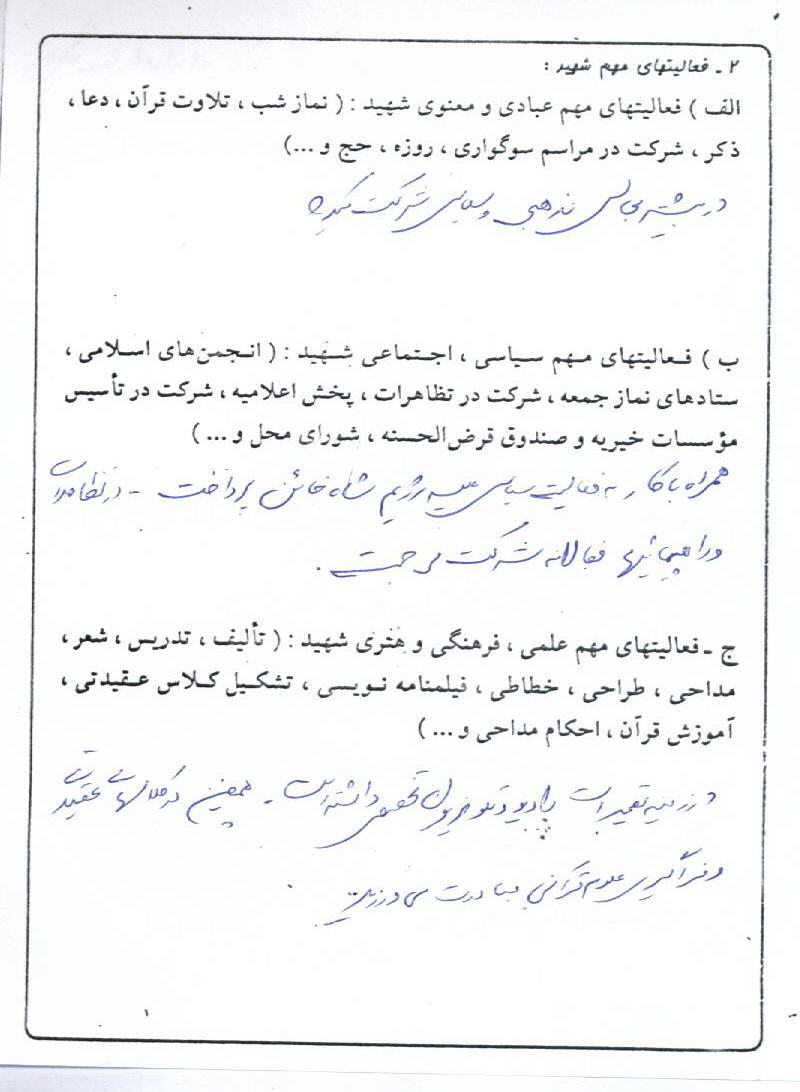 ۲ ـ فعالیتهای مهم شهید :
الف ) فعالیتهای مهم عبادی و معنوی شهید : ( نماز شب ، تلاوت قرآن ، دعا ،
ذکر ، شرکت در مراسم سوگواری ، روزه ، حج و ...)
در بیشتر مجالس مذهبی و سیاسی شرکت میکرد
ب ) فعالیتهای مهم سیاسی ، اجتماعی شهید : ( انجمن‌های اسلامی ،
ستادهای نماز جمعه ، شرکت در تظاهرات ، پخش اعلامیه ، شرکت در تأسیس
مؤسسات خیریه و صندوق قرض‌الحسنه ، شورای محل و ... )
همراه با کار به فعالیت سیاسی علیه رژیم شاه خائن پرداخت - در تظاهرات
و راهپیمائیها فعالانه شرکت می جست .
ج ـ فعالیتهای مهم علمی ، فرهنگی و هنری شهید : ( تألیف ، تدریس ، شعر ،
مداحی ، طراحی ، خطاطی ، فیلمنامه نویسی ، تشکیل کلاس عقیدتی ،
آموزش قرآن ، احکام مداحی و ... )
در زمینه تعمیرات رادیو و تلویزیون تخصص داشته است - همچنین در کلاسهای عقیدتی
و فراگیری علوم قرآنی مبادرت می ورزید